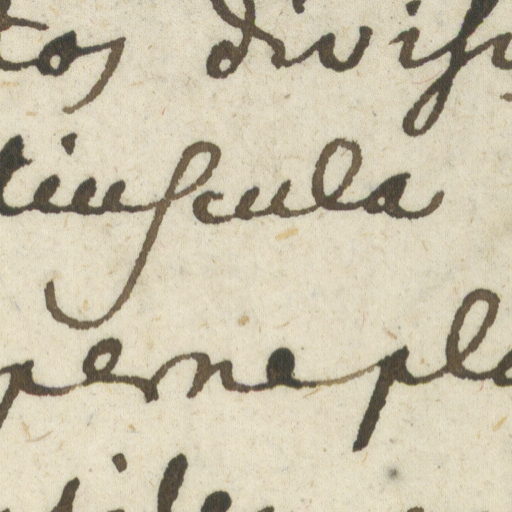 tos divis
tiuscula
perne pla